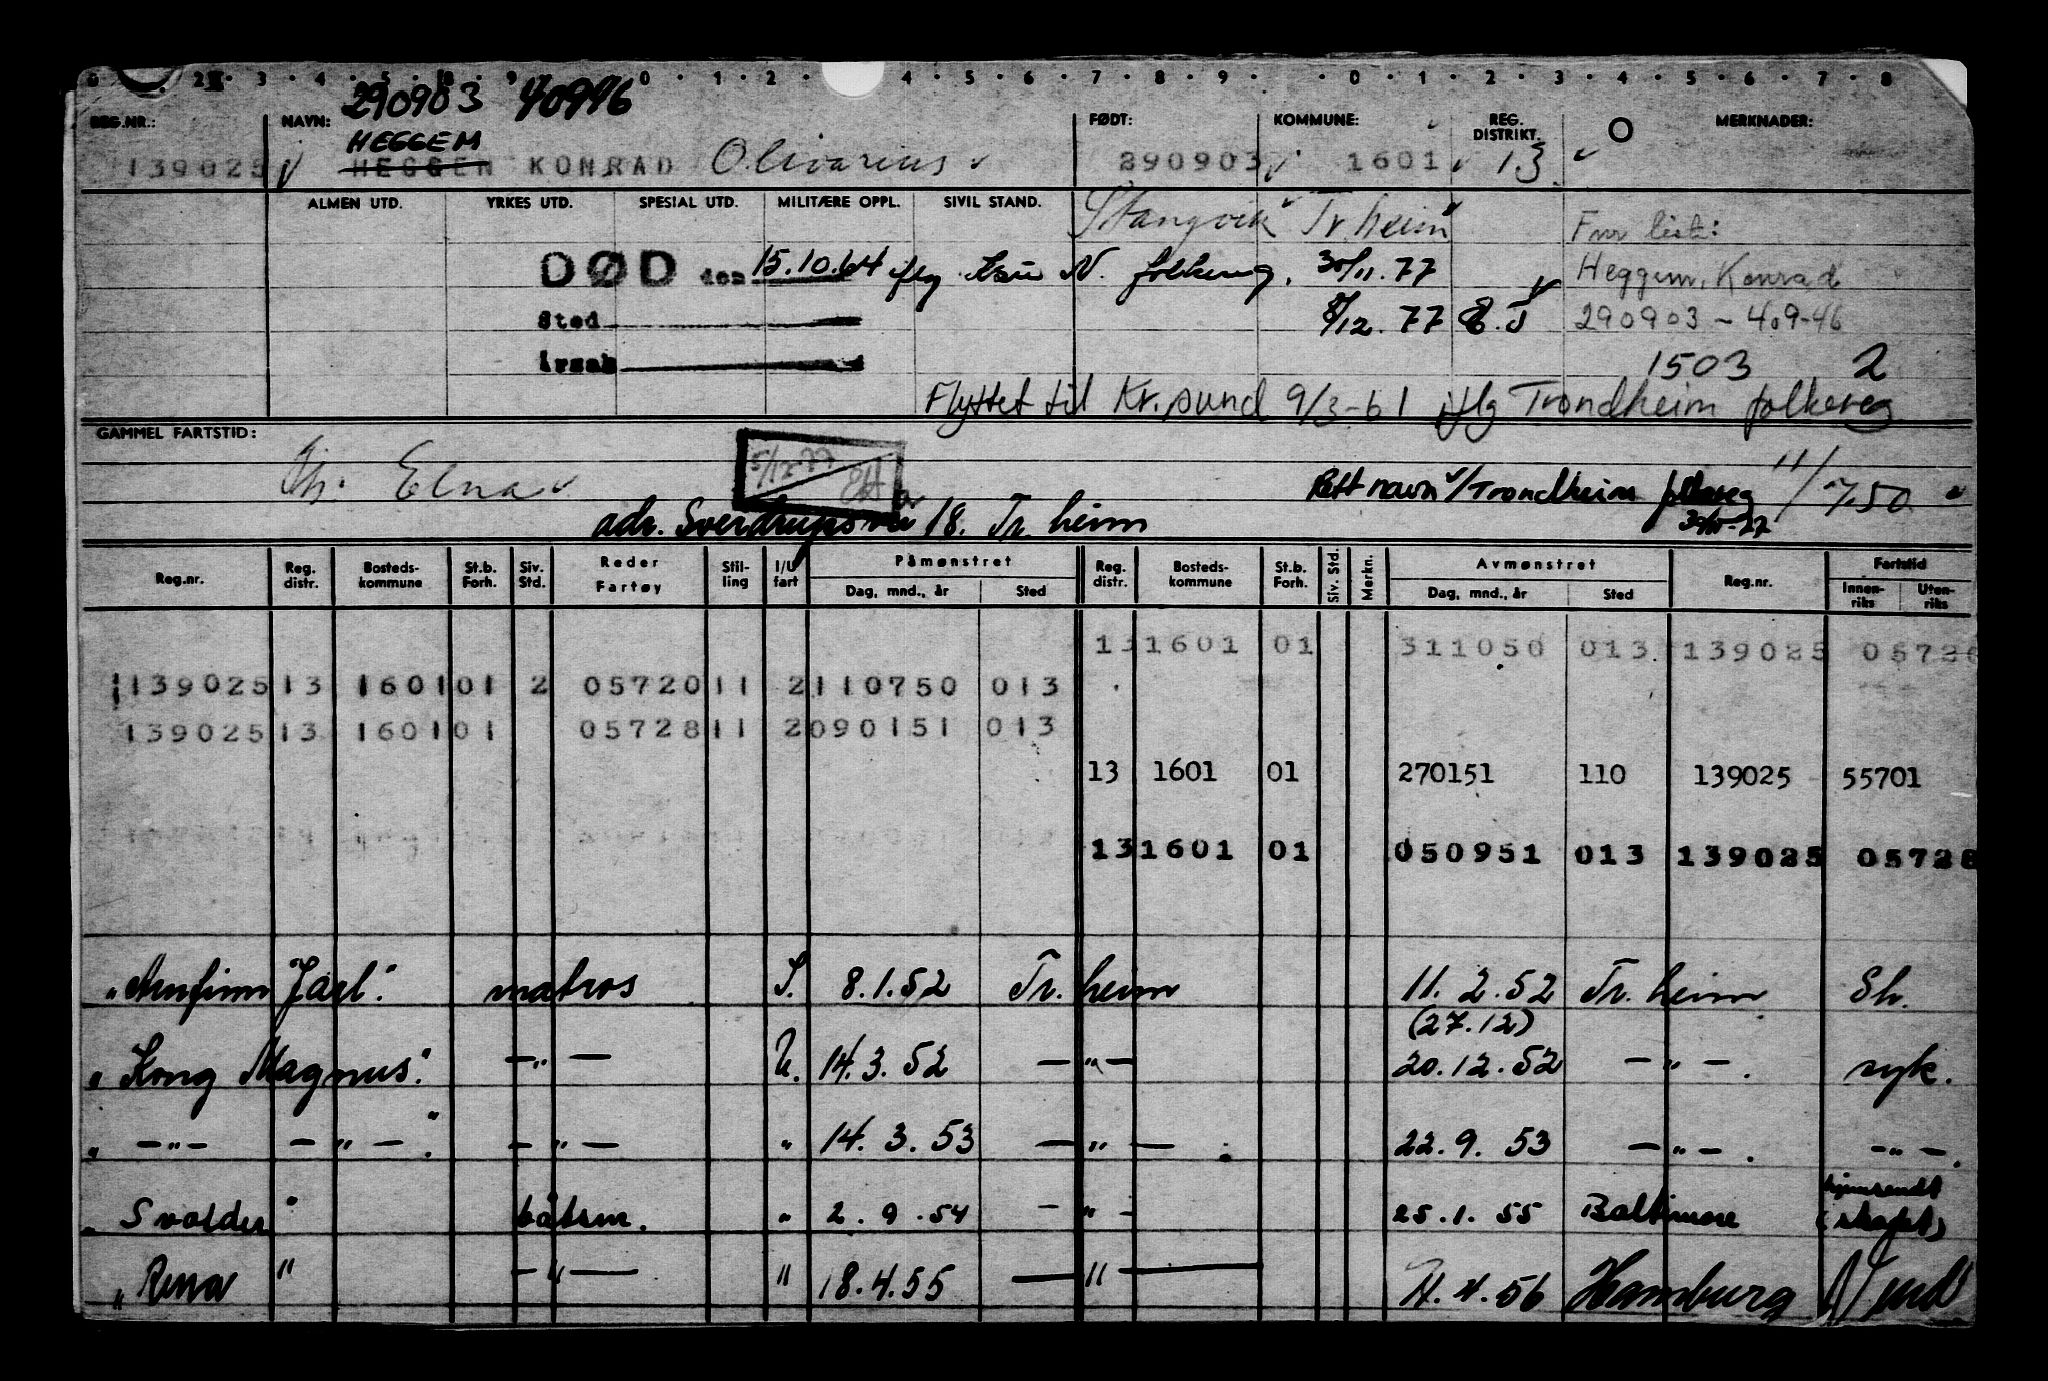 290903 40946
REG.NR.: NAVN: FØDT: KOMMUNE: REG. DISTRIKT. MERKNADER:
HEGGEM
139025 HEGGEN KONRAD Olivarius 290903 1601 13
ALMEN UTD. YRKES UTD. SPESIAL UTD. MILITÆRE OPPL. SIVIL STAND. Stangvik Tr.heim Fnr list:
DØD den 15.10.64 iflg N. folkereg. 30/11.77 Heggem, Konrad
Sted 8/12.77 290903-409-46
Årsak 1503 2
Flyttet til Kr.sund 9/3-61 iflg Trondheim folkereg
GAMMEL FARTSTID:
Elna 5/12-77 Rett navn v/Trondheim folkereg 11/7.50
adr. 18. Tr.heim
Reg.nr. Reg. distr. Bosteds- kommune St.b. Forh. Siv. Std. Reder Fartøy Stil- ling I/U fart Påmønstret Dag, mnd., år Sted Reg. distr. Bosteds- kommune St.b. Forh. Siv. Std. Merkn. Avmønstret Dag, mnd., år Sted Reg.nr. Fartstid Innen- riks Uten- riks
13 1601 01 311050 013 139025 0572
139025 13 1601 01 2 05720 11 2 110750 013
139025 13 1601 01 05728 11 2 090151 013
13 1601 01 270151 110 139025 55701
13 1601 01 050951 013 139025 05728
"Arnfinn Jarl". matros I. 8.1.52 Tr.heim 11.2.52 Tr.heim Sh.
(27.12)
"Kong Magnus". -"- U. 14.3.52 -"- 20.12.52 -"-. syk.
" -"- -"-". -"- " 14.3.53 -"- 22.9.53 -"-. -"-.
hjemsendt
"Svolder" båtsm. " 2.9.54 -"- 25.1.55 Baltimore
"Rena" -"- " 18.4.55 -"- 4.56 Hamburg